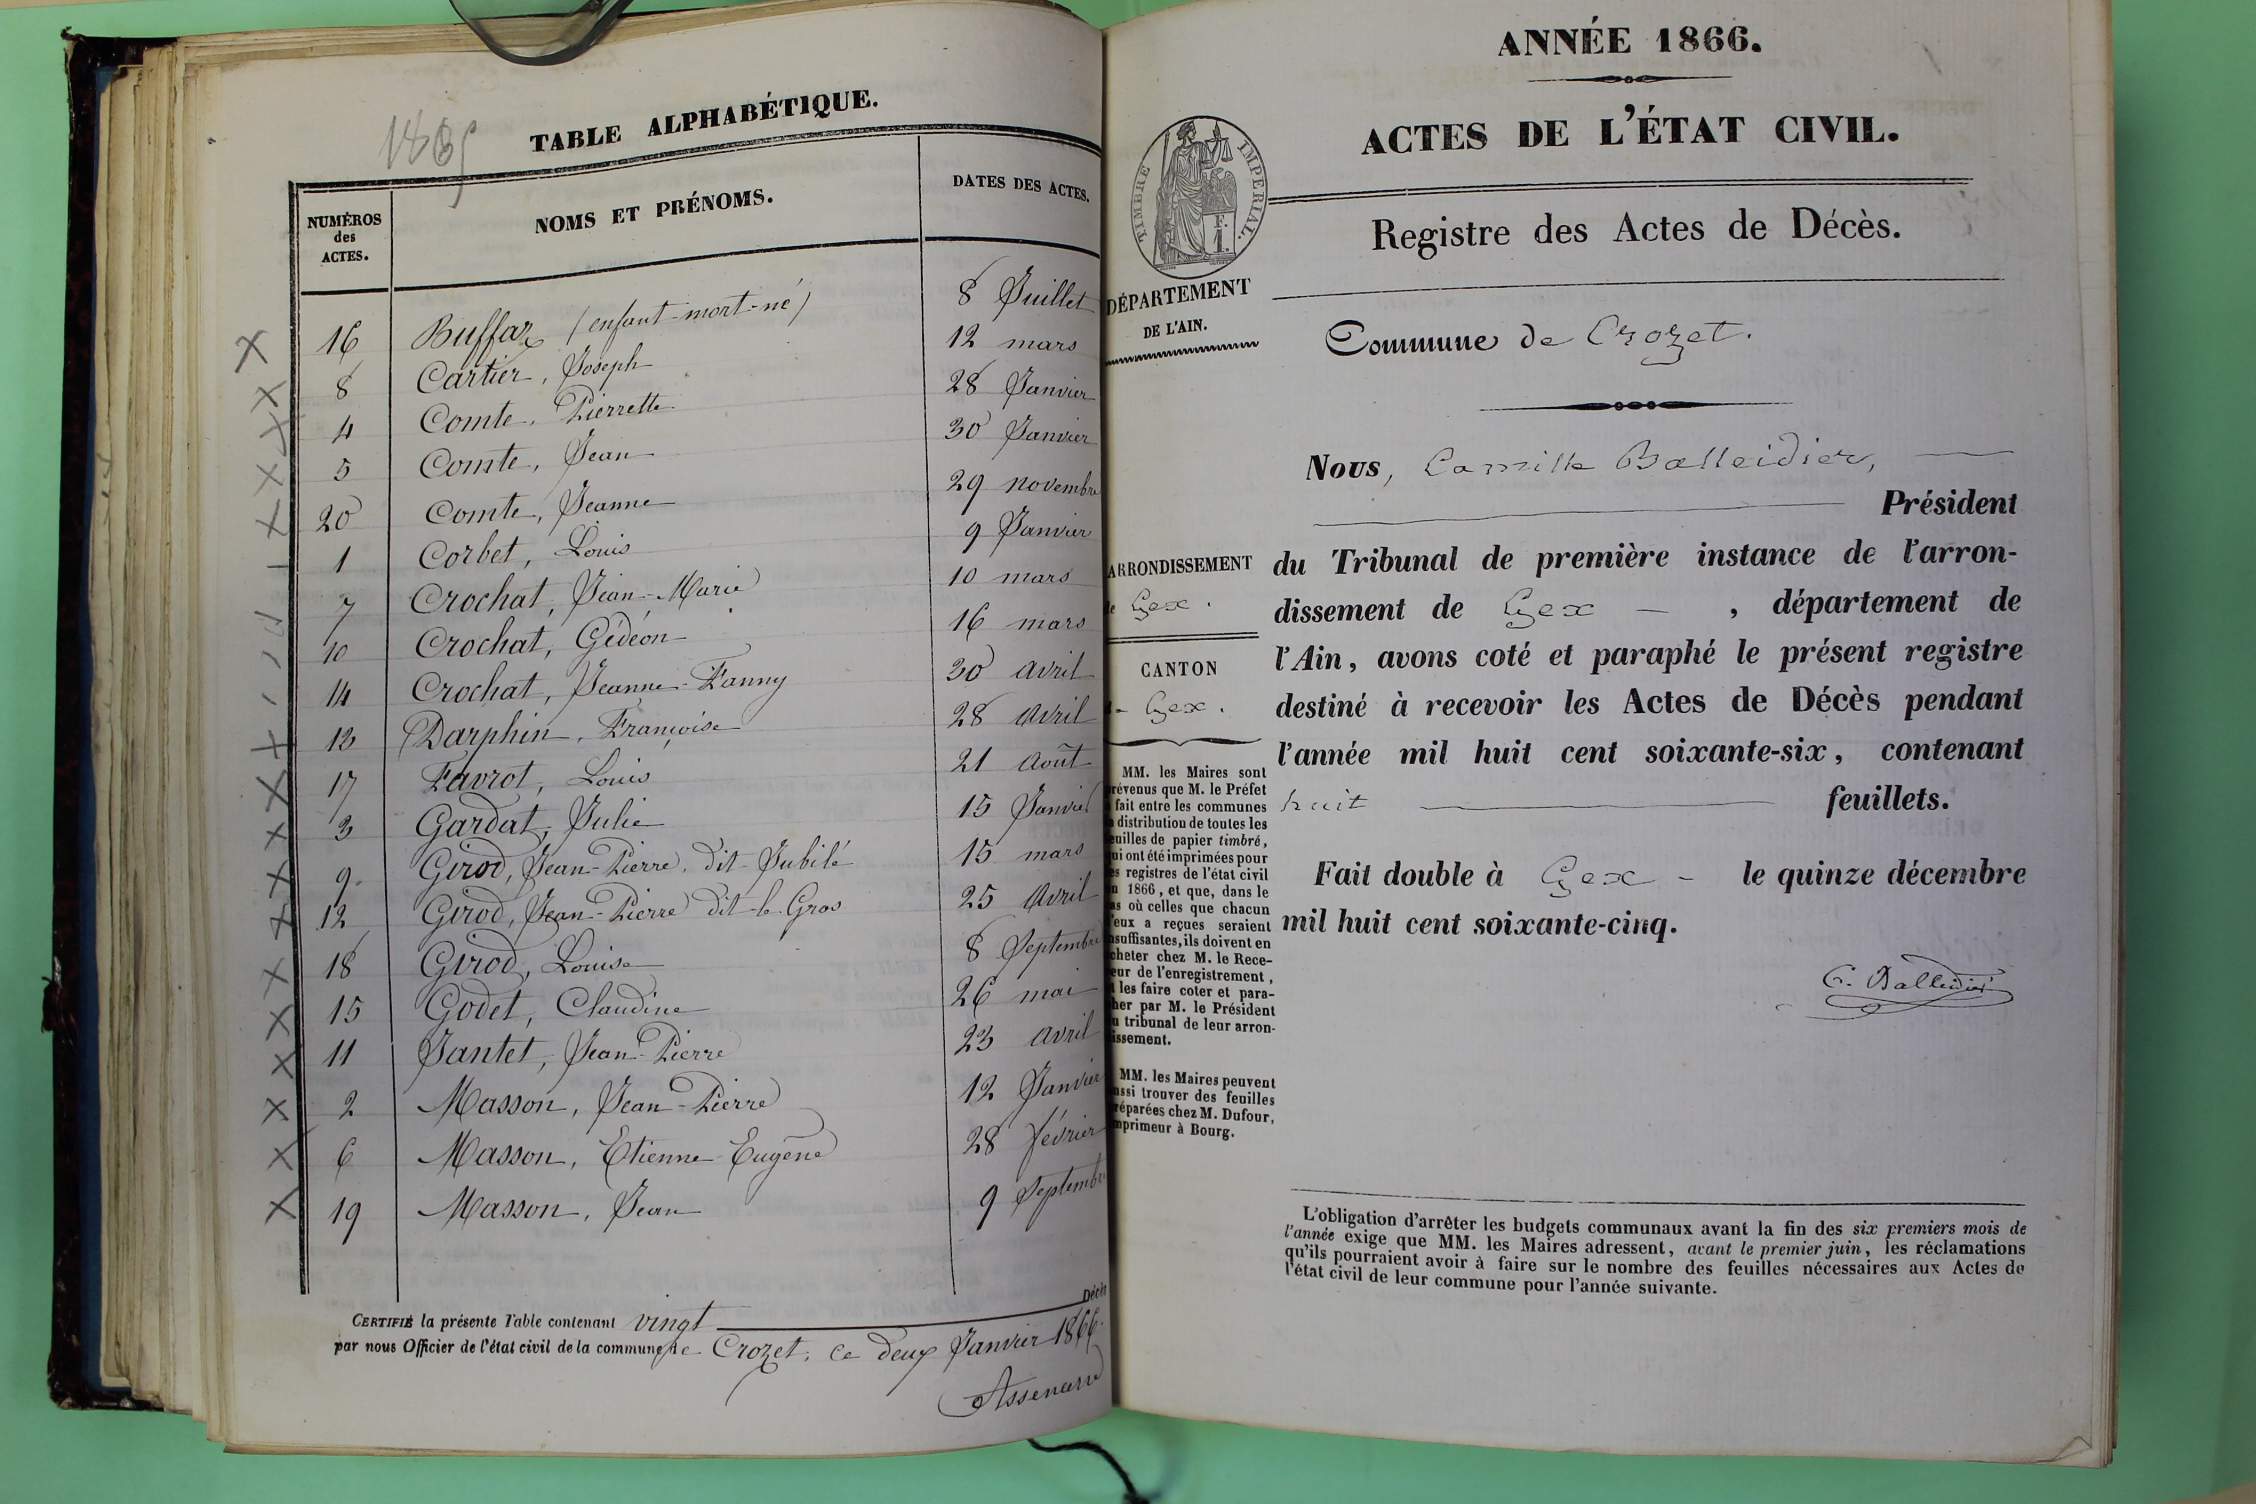 1865
TABLE ALPHABÉTIQUE.
NUMÉROS des ACTES. NOMS ET PRÉNOMS. DATES DES ACTES.
16 Buffaz (enfant mort-né) 8 Juillet
8 Cartier, Joseph 12 mars
4 Comte, Pierrette 28 Janvier
5 Comte, Jean 30 Janvier
20 Comte, Jeanne 29 novembre
1 Corbet, Louis 9 Janvier
7 Crochat, Jean-Marie 10 mars
10 Crochat, Gédéon 16 mars
14 Crochat, Jeanne-Fanny 30 avril
13 Darphin, Françoise 28 avril
17 Favrot, Louis 21 août
3 Gardat, Julie 15 Janvier
9 Girod, Jean-Pierre, dit Jubilé 15 mars
12 Girod, Jean-Pierre dit le Gros 25 avril
18 Girod, Louise 8 Septembre
15 Godet, Claudine 26 mai
11 Jantet, Jean-Pierre 23 avril
2 Masson, Jean-Pierre 12 Janvier
6 Masson, Etienne Eugène 28 février
19 Masson, Jean 9 Septembre
Décès
CERTIFIÉ la présente Table contenant vingt
par nous Officier de l'état civil de la commune de Crozet, ce deux Janvier 1866.
ANNÉE 1866.
ACTES DE L'ÉTAT CIVIL.
TIMBRE IMPERIAL.
F.
1.
Registre des Actes de Décès.
DÉPARTEMENT
DE L'AIN.
Commune de Crozet.
Nous, Camille Balleidier,
Président
du Tribunal de première instance de l'arron-
dissement de Gex, département de
l'Ain, avons coté et paraphé le présent registre
destiné à recevoir les Actes de Décès pendant
l'année mil huit cent soixante-six, contenant
huit feuillets.
Fait double à Gex le quinze décembre
mil huit cent soixante-cinq.
C. Balleidier
ARRONDISSEMENT
de Gex.
CANTON
de Gex.
MM. les Maires sont
prévenus que M. le Préfet
a fait entre les communes
la distribution de toutes les
feuilles de papier timbré,
qui ont été imprimées pour
les registres de l'état civil
en 1866, et que, dans le
cas où celles que chacun
d'eux a reçues seraient
insuffisantes, ils doivent en
acheter chez M. le Rece-
veur de l'enregistrement,
et les faire coter et para-
pher par M. le Président
du tribunal de leur arron-
dissement.
MM. les Maires peuvent
aussi trouver des feuilles
préparées chez M. Dufour,
imprimeur à Bourg.
L'obligation d'arrêter les budgets communaux avant la fin des six premiers mois de
l'année exige que MM. les Maires adressent, avant le premier juin, les réclamations
qu'ils pourraient avoir à faire sur le nombre des feuilles nécessaires aux Actes de
l'état civil de leur commune pour l'année suivante.